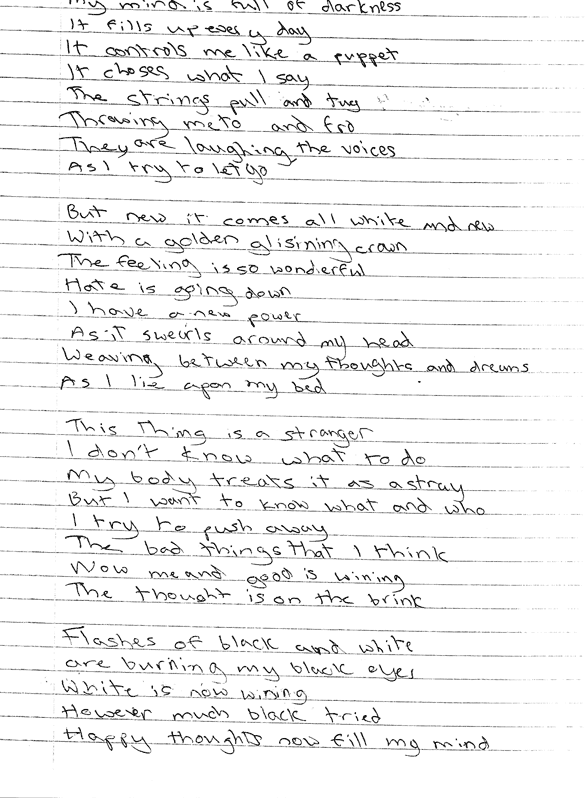 My mind is full of darkness
It fills up every day
It controls me like a puppet
It choses what I say
The strings pull and tug
Throwing me to and fro
They are laughing, the voices
As I try to let go
But new it comes all white and new
With a golden glisining crown
The feeling is so wonderful
Hate is going down
I have a new power
As it sweirls around my head
Weaving between my thoughts and dreams
As I lie apon my bed
This Thing is a stranger
I don't know what to do
My body treats it as a stray
But I want to know what and who
I try to push away
The bad things that I think
Now me and good is wining
The thought is on the brink
Flashes of black and white
are burning my black eyes
White is now wining
However much black tried
Happy thoughts now fill my mind